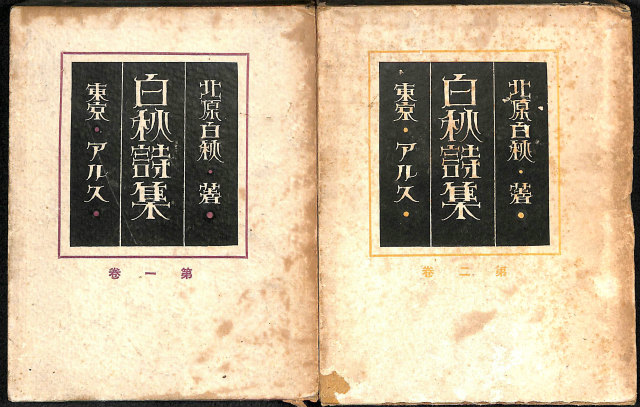 北原白秋・著・
白秋詩集
東京・アルス・
第一巻
北原白秋・著・
白秋詩集
東京・アルス・
第二巻